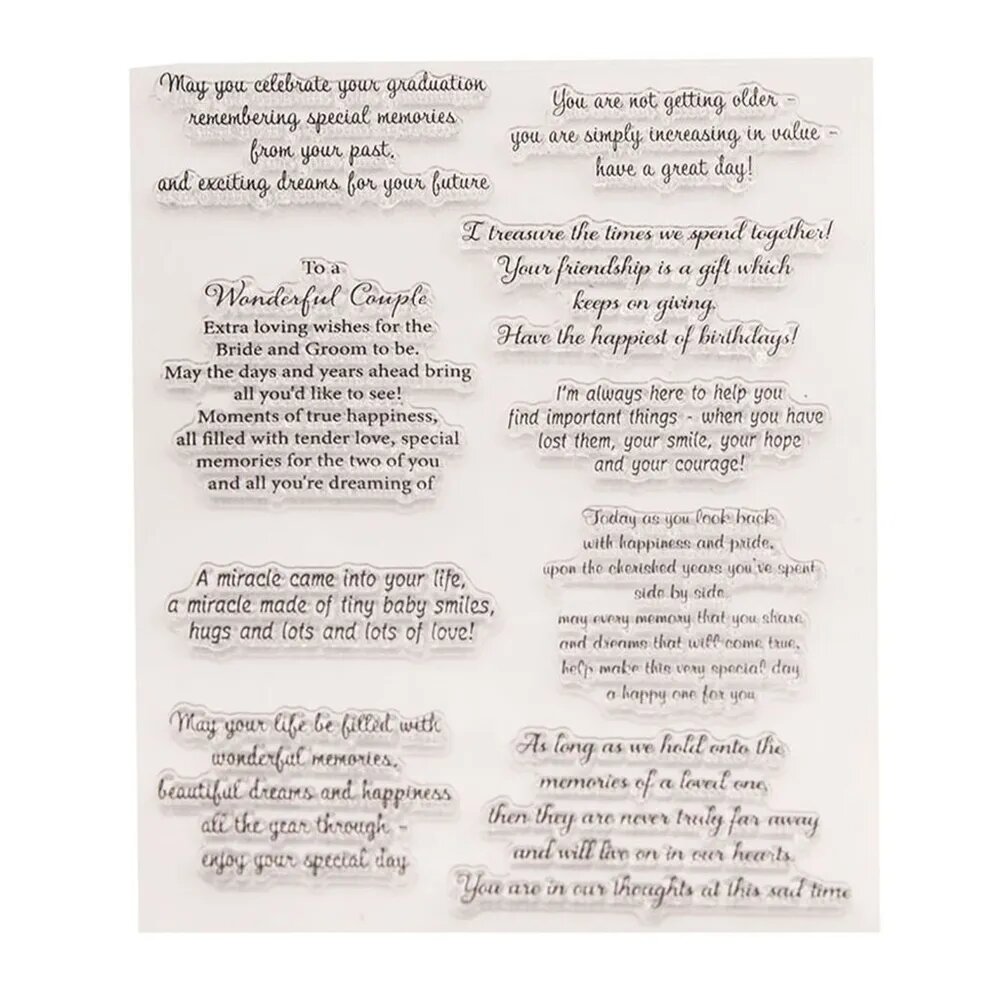 May you celebrate your graduation
remembering special memories
from your past,
and exciting dreams for your future
You are not getting older -
you are simply increasing in value -
have a great day!
I treasure the times we spend together!
Your friendship is a gift which
keeps on giving.
Have the happiest of birthdays!
To a
Wonderful Couple
Extra loving wishes for the
Bride and Groom to be.
May the days and years ahead bring
all you'd like to see!
Moments of true happiness,
all filled with tender love, special
memories for the two of you
and all you're dreaming of
I'm always here to help you
find important things - when you have
lost them, your smile, your hope
and your courage!
Today as you look back
with happiness and pride,
upon the cherished years you've spent
side by side.
may every memory that you share
and dreams that will come true,
help make this very special day
a happy one for you
A miracle came into your life,
a miracle made of tiny baby smiles,
hugs and lots and lots of love!
May your life be filled with
wonderful memories,
beautiful dreams and happiness
all the year through -
enjoy your special day
As long as we hold onto the
memories of a loved one,
then they are never truly far away
and will live on in our hearts.
You are in our thoughts at this sad time